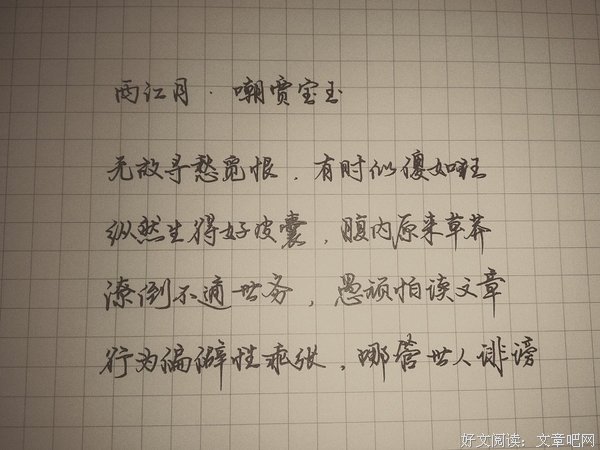 西江月·嘲贾宝玉
无故寻愁觅恨，有时似傻如狂
纵然生得好皮囊，腹内原来草莽
潦倒不通世务，愚顽怕读文章
行为偏僻性乖张，哪管世人诽谤
好文阅读：文章吧网